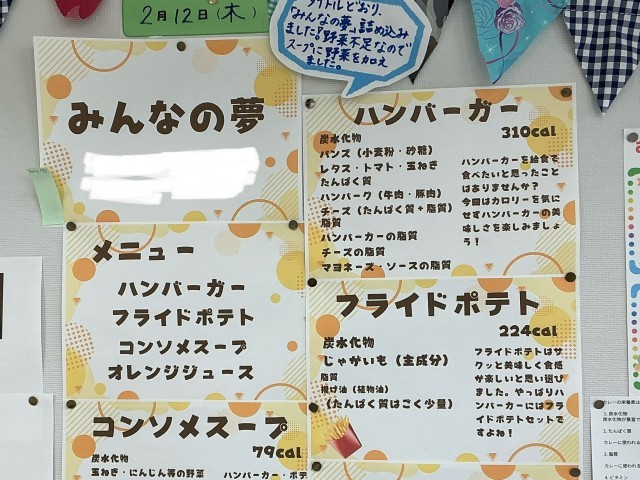 2月12日(木)
タイトルどおり、
「みんなの夢」詰め込み
ました!野菜不足なので
スープに野菜を加え
ました。
みんなの夢
メニュー
ハンバーガー
フライドポテト
コンソメスープ
オレンジジュース
コンソメスープ
79cal
炭水化物
玉ねぎ・にんじん等の野菜
ハンバーガー・ポテ
ハンバーガー
310cal
炭水化物
バンズ(小麦粉・砂糖)
レタス・トマト・玉ねぎ
たんぱく質
ハンバーグ(牛肉・豚肉)
チーズ(たんぱく質+脂質)
脂質
ハンバーガーの脂質
チーズの脂質
マヨネーズ・ソースの脂質
ハンバーガーを給食で
食べたいと思ったこと
はありませんか?
今回はカロリーを気に
せずハンバーガーの美
味しさを楽しみましょ
う!
フライドポテト
224cal
炭水化物
じゃがいも(主成分)
脂質
揚げ油(植物油)
(たんぱく質はごく少量)
フライドポテトはサ
クッと美味しく食感
が楽しいと思い選び
ました。やっぱりハ
ンバーガーにはフラ
イドポテトセットで
すよね!
カレーの栄養素は
1. 炭水化物
炭水化物が豊富で
2. たんぱく質
カレーに使われる
3. 脂質
カレーに使われる
4. ビタミン